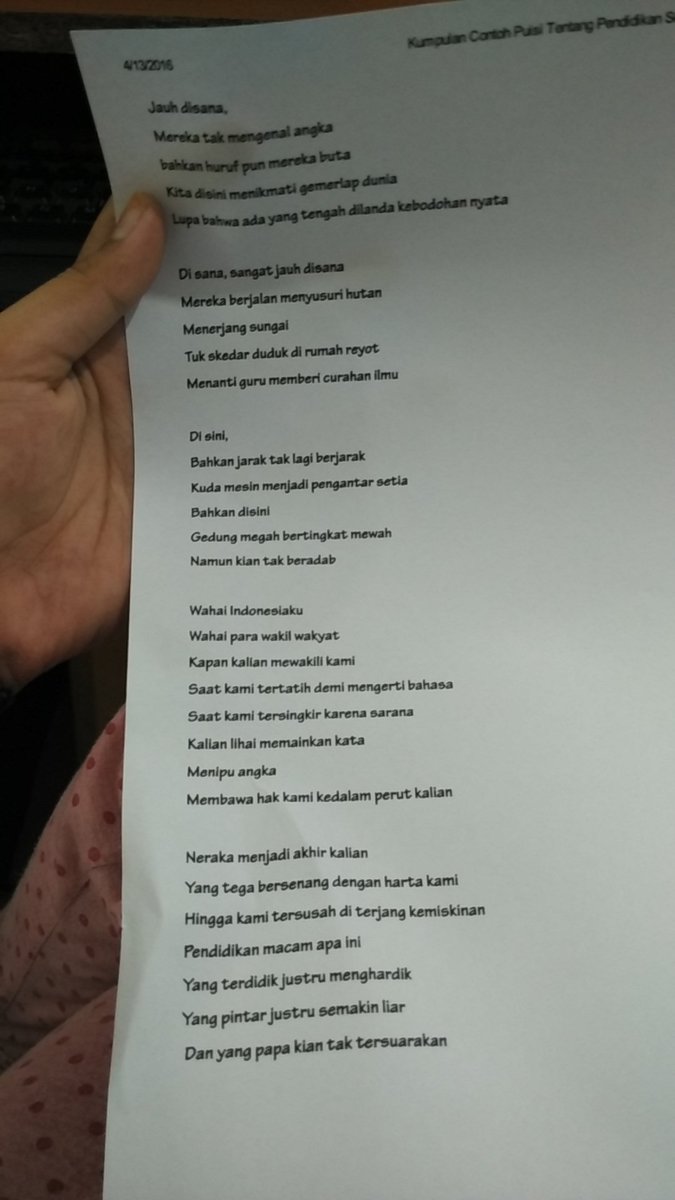 4/13/2016
Kumpulan Contoh Puisi Tentang Pendidikan
Jauh disana,
Mereka tak mengenal angka
bahkan huruf pun mereka buta
Kita disini menikmati gemerlap dunia
Lupa bahwa ada yang tengah dilanda kebodohan nyata
Di sana, sangat jauh disana
Mereka berjalan menyusuri hutan
Menerjang sungai
Tuk skedar duduk di rumah reyot
Menanti guru memberi curahan ilmu
Di sini,
Bahkan jarak tak lagi berjarak
Kuda mesin menjadi pengantar setia
Bahkan disini
Gedung megah bertingkat mewah
Namun kian tak beradab
Wahai Indonesiaku
Wahai para wakil wakyat
Kapan kalian mewakili kami
Saat kami tertatih demi mengerti bahasa
Saat kami tersingkir karena sarana
Kalian lihai memainkan kata
Menipu angka
Membawa hak kami kedalam perut kalian
Neraka menjadi akhir kalian
Yang tega bersenang dengan harta kami
Hingga kami tersusah di terjang kemiskinan
Pendidikan macam apa ini
Yang terdidik justru menghardik
Yang pintar justru semakin liar
Dan yang papa kian tak tersuarakan